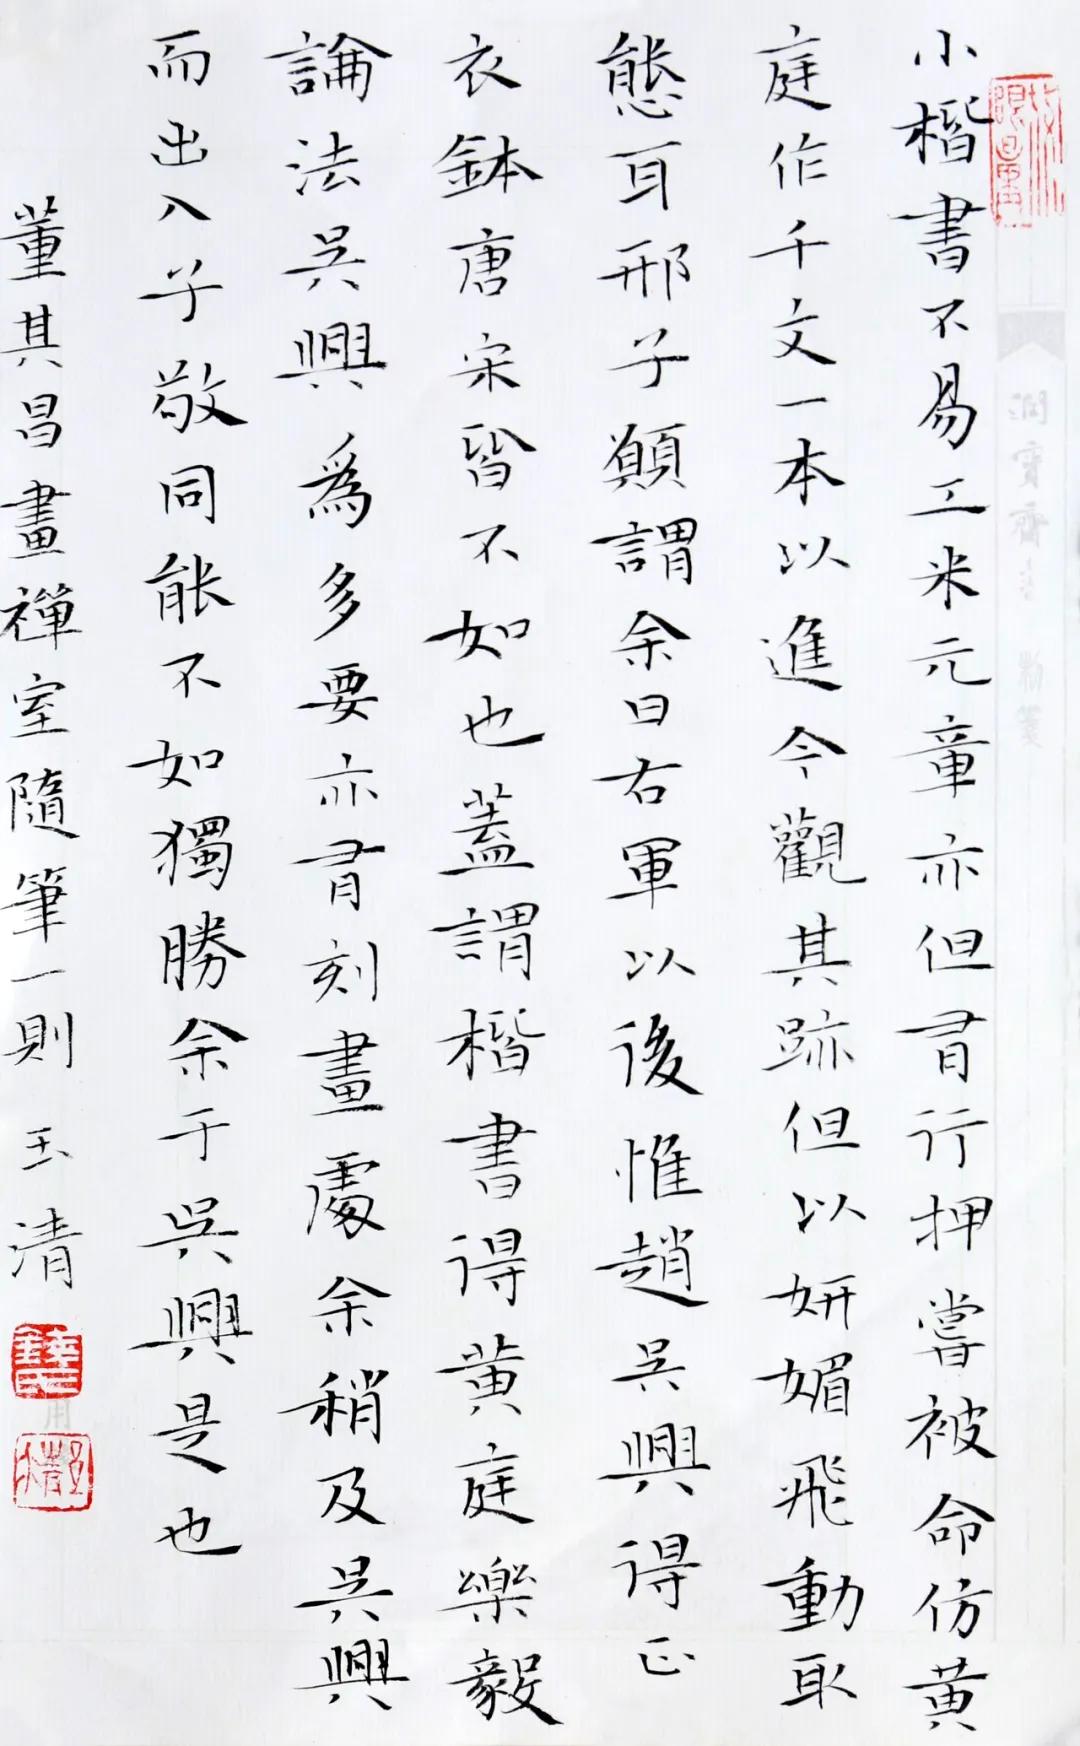 小楷書不易工米元章亦但有行押嘗被命仿黄
庭作千文一本以進今觀其跡但以妍媚飛動取
態耳邢子願謂余曰右軍以後惟趙吳興得正
衣鉢唐宋皆不如也蓋謂楷書得黄庭樂毅
論法吳興為多要亦有刻畫處余稍及吳興
而出入子敬同能不如獨勝余于吳興是也
董其昌畫禪室隨筆一則 玉清